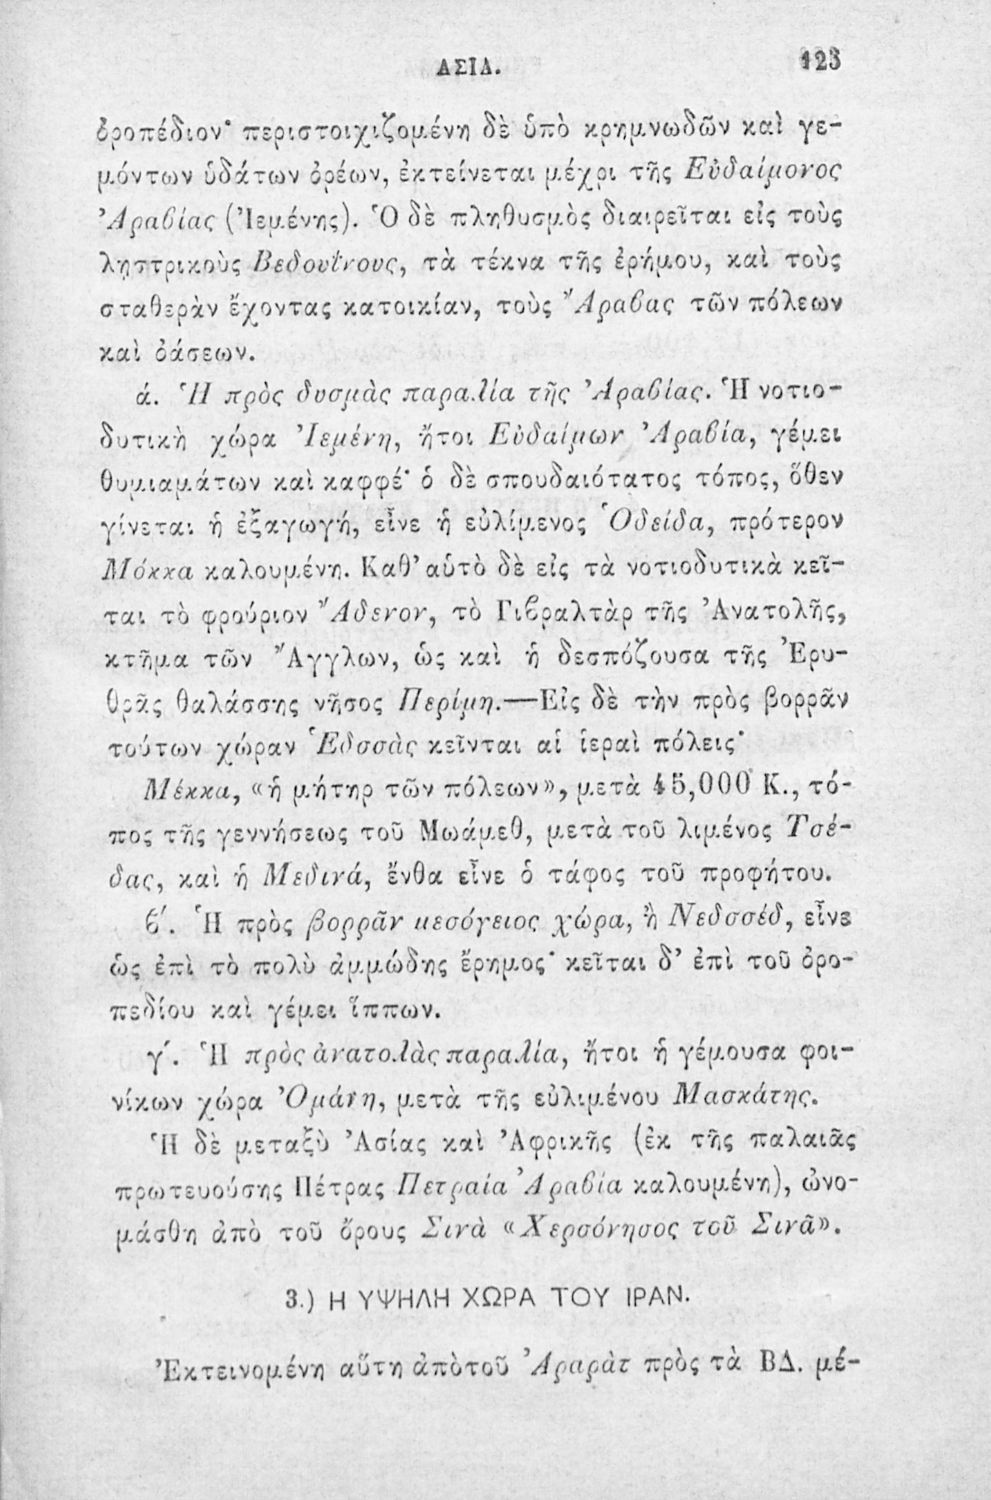 ΑΣΙΑ. 123
ὁροπέδιον· περιστοιχιζομένη δὲ ὑπὸ κρημνωδῶν καὶ γε-
μόντων ὑδάτων ὀρέων, ἐκτείνεται μέχρι τῆς Εὐδαίμονος
Ἀραβίας (Ἰεμένης). Ὁ δὲ πληθυσμὸς διαιρεῖται εἰς τοὺς
λῃστρικοὺς Βεδουΐνους, τὰ τέκνα τῆς ἐρήμου, καὶ τοὺς
σταθερὰν ἔχοντας κατοικίαν, τοὺς Ἄραβας τῶν πόλεων
καὶ ὀάσεων.
ά. Ἡ πρὸς δυσμὰς παραλία τῆς Ἀραβίας. Ἡ νοτιο-
δυτικὴ χώρα Ἰεμένη, ἤτοι Εὐδαίμων Ἀραβία, γέμει
θυμιαμάτων καὶ καφφέ· ὁ δὲ σπουδαιότατος τόπος, ὅθεν
γίνεται ἡ ἐξαγωγή, εἶνε ἡ εὐλίμενος Ὁδείδα, πρότερον
Μόκκα καλουμένη. Καθ' αὑτὸ δὲ εἰς τὰ νοτιοδυτικὰ κεῖ-
ται τὸ φρούριον Ἄδενον, τὸ Γιβραλτὰρ τῆς Ἀνατολῆς,
κτῆμα τῶν Ἄγγλων, ὡς καὶ ἡ δεσπόζουσα τῆς Ἐρυ-
θρᾶς θαλάσσης νῆσος Περίμη.—Εἰς δὲ τὴν πρὸς βορρᾶν
τούτων χώραν Ἑδσσὰς κεῖνται αἱ ἱεραὶ πόλεις·
Μέκκα, «ἡ μήτηρ τῶν πόλεων», μετὰ 45,000 Κ., τό-
πος τῆς γεννήσεως τοῦ Μωάμεθ, μετὰ τοῦ λιμένος Τσέ-
δας, καὶ ἡ Μεδινά, ἔνθα εἶνε ὁ τάφος τοῦ προφήτου.
β΄. Ἡ πρὸς βορρᾶν μεσόγειος χώρα, ἢ Νεδσσέδ, εἶνε
ὡς ἐπὶ τὸ πολὺ ἀμμώδης ἔρημος· κεῖται δ' ἐπὶ τοῦ ὀρο-
πεδίου καὶ γέμει ἵππων.
γ΄. Ἡ πρὸς ἀνατολὰς παραλία, ἤτοι ἡ γέμουσα φοι-
νίκων χώρα Ὀμάνη, μετὰ τῆς εὐλιμένου Μασκάτης.
Ἡ δὲ μεταξὺ Ἀσίας καὶ Ἀφρικῆς (ἐκ τῆς παλαιᾶς
πρωτευούσης Πέτρας Πετραία Ἀραβία καλουμένη), ὠνο-
μάσθη ἀπὸ τοῦ ὄρους Σινὰ «Χερσόνησος τοῦ Σινᾶ».
3.) Η ΥΨΗΛΗ ΧΩΡΑ ΤΟΥ ΙΡΑΝ.
Ἐκτεινομένη αὕτη ἀπὸ τοῦ Ἀραρὰτ πρὸς τὰ ΒΔ. μέ-